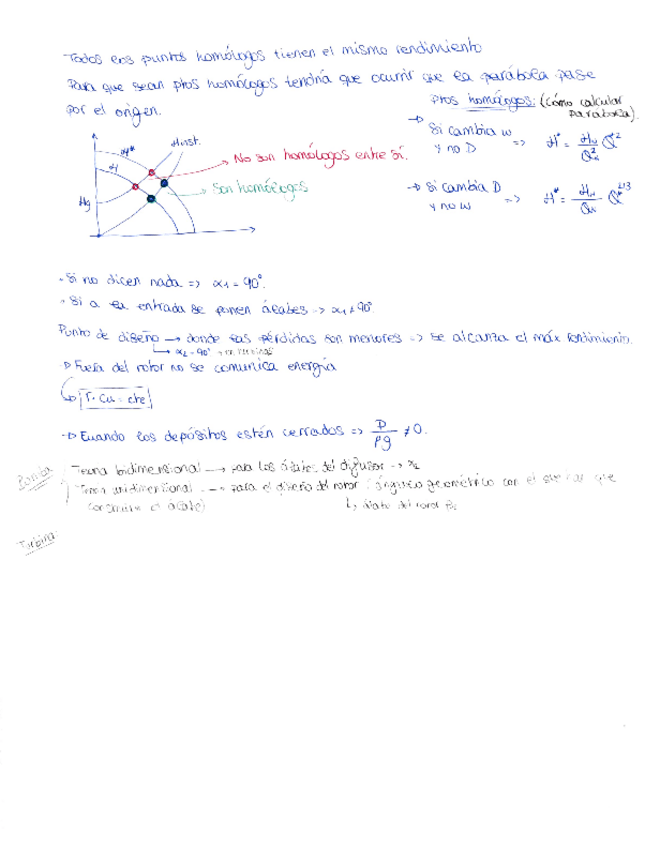 Todos los puntos homólogos tienen el mismo rendimiento
Para que sean ptos homólogos tendría que ocurrir que la parábola pase
por el origen.
ptos homólogos: (cómo calcular
parábola).
→ Si cambia w
y no D => H* = Hu/Qu² Q²
→ Si cambia D
y no w => H* = Hu/Qu Q^2/3
H*
H
Hinst.
Hg
No son homólogos entre sí.
Son homólogos
- Si no dicen nada => α1 = 90°.
- Si a la entrada se ponen álabes => α1 ≠ 90°
Punto de diseño → donde las pérdidas son menores => se alcanza el máx rendimiento.
α2 = 90°
→ Fuera del rotor no se comunica energía
r · Cu = cte
→ Cuando los depósitos estén cerrados => P/ρg ≠ 0.
Bomba
Teoría bidimensional → para los álabes del difusor → α2
Teoría unidimensional → para el diseño del rotor (ángulo geométrico con el que hay que
construir el álabe)
Turbina: